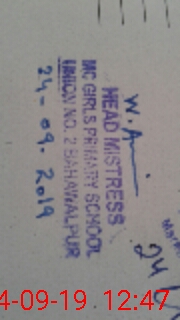 W. A
HEAD MISTRESS
MC GIRLS PRIMARY SCHOOL
UNION NO. 2 BAHAWALPUR
24-09-2019
24/
4-09-19 12:47